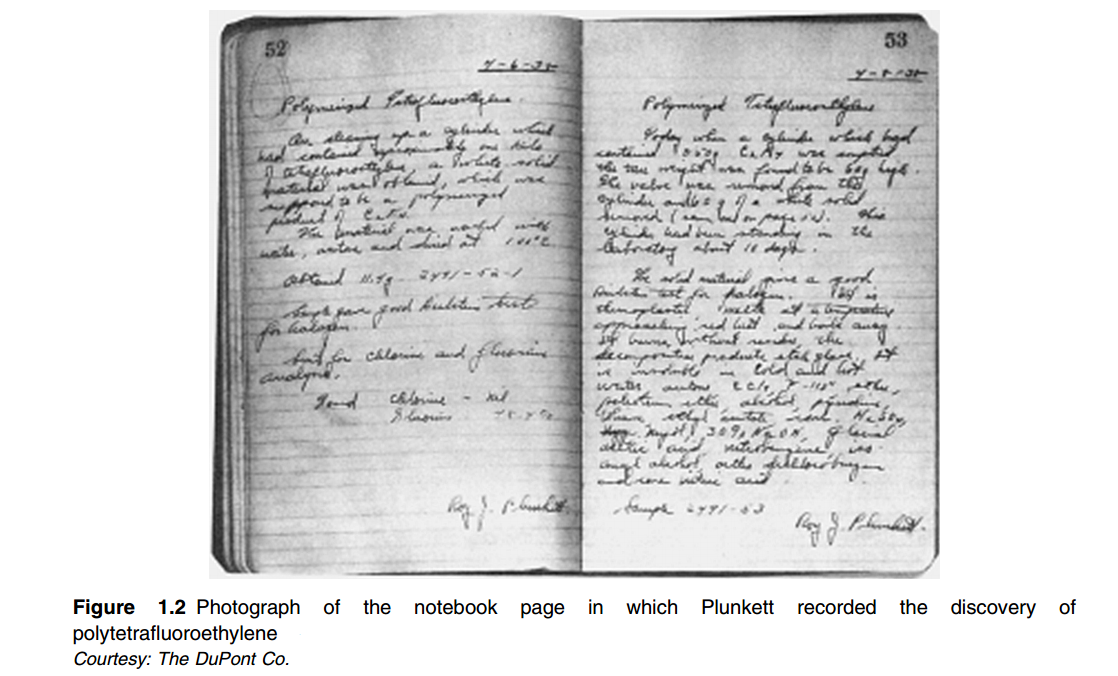 52
4-6-38
Polymerized Tetrafluoroethylene.
On cleaning up a cylinder which
had contained approximately one kilo
of tetrafluoroethylene a white solid
material was obtained, which was
supposed to be a polymerized
product of C2F4.
The material was washed with
water, acetone and dried at 100°C
Obtained 11.9g. 2991-52-1
Sample gave good Beilstein test
for halogen.
Sent for chlorine and fluorine
analysis.
Found Chlorine - Nil
Fluorine
Roy J. Plunkett.
53
4-8-38
Polymerized Tetrafluoroethylene
Today when a cylinder which had
contained C2F4 was emptied
the tare weight was found to be high.
The valve was removed from the
cylinder and of a white solid
removed on page This
cylinder had been standing in the
laboratory about 10 days.
The solid material gave a good
Beilstein test for halogen. It is
thermoplastic melts at a temperature
approaching red heat and boils away.
It burns without residue, the
decomposition products etch glass. It
is insoluble in cold and hot
water acetone ether,
petroleum ether alcohol pyridine,
ethyl acetate H2SO4,
30% NaOH, glacial
acetic acid, nitrobenzene
amyl alcohol, ortho dichlorobenzene
and conc nitric acid
Sample 2991-53
Roy J. Plunkett.
Figure 1.2 Photograph of the notebook page in which Plunkett recorded the discovery of
polytetrafluoroethylene
Courtesy: The DuPont Co.